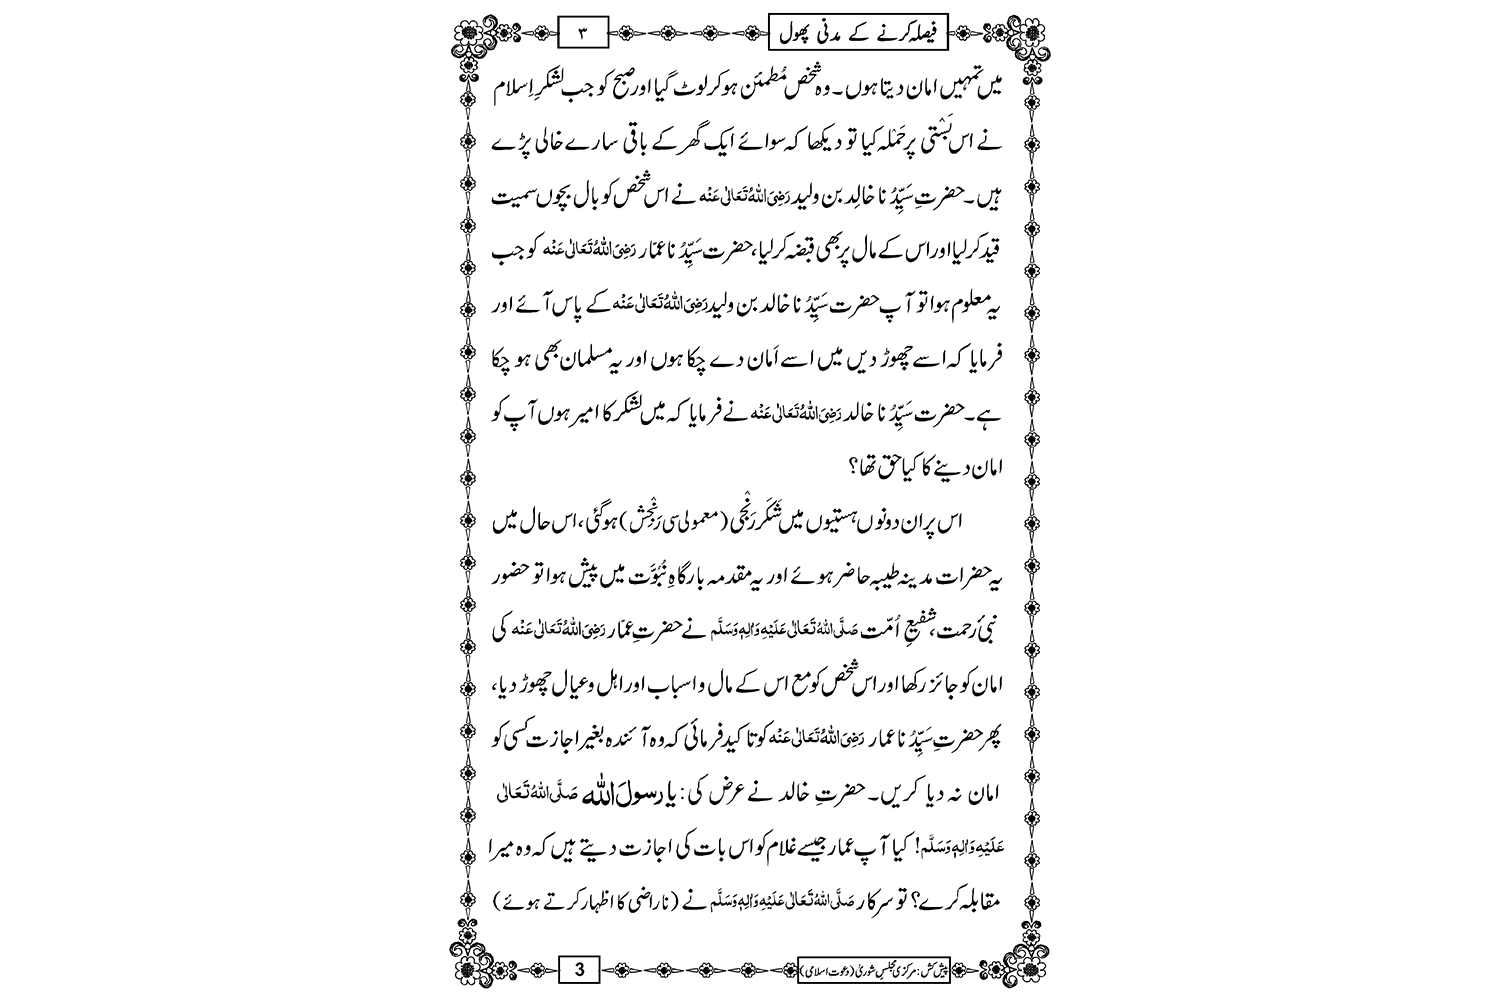 فیصلہ کرنے کے مدنی پھول
۳
میں تمہیں امان دیتا ہوں۔ وہ شخص مُطمئن ہوکر لوٹ گیا اور صبح کو جب لشکرِ اِسلام
نے اس بَسْتی پر حَمْلہ کیا تو دیکھا کہ سوائے ایک گھر کے باقی سارے خالی پڑے
ہیں۔ حضرتِ سَیِّدُنا خالِد بن ولید رَضِیَ اللہُ تَعَالٰی عَنْہ نے اس شخص کو بال بچوں سمیت
قید کرلیا اور اس کے مال پر بھی قبضہ کرلیا، حضرت سَیِّدُنا عمّار رَضِیَ اللہُ تَعَالٰی عَنْہ کو جب
یہ معلوم ہوا تو آپ حضرت سَیِّدُنا خالد بن ولید رَضِیَ اللہُ تَعَالٰی عَنْہ کے پاس آئے اور
فرمایا کہ اسے چھوڑ دیں میں اسے اَمان دے چکا ہوں اور یہ مسلمان بھی ہو چکا
ہے۔ حضرت سَیِّدُنا خالد رَضِیَ اللہُ تَعَالٰی عَنْہ نے فرمایا کہ میں لشکر کا امیر ہوں آپ کو
امان دینے کا کیا حق تھا؟
اس پر ان دونوں ہستیوں میں شَکَر رَنْجی (معمولی سی رَنْجِش) ہوگئی، اس حال میں
یہ حضرات مدینہ طیبہ حاضر ہوئے اور یہ مقدمہ بارگاہِ نُبُوَّت میں پیش ہوا تو حضور
نبیٔ رحمت، شفیعِ اُمّت صَلَّی اللہُ تَعَالٰی عَلَیْہِ وَاٰلِہٖ وَسَلَّم نے حضرتِ عمّار رَضِیَ اللہُ تَعَالٰی عَنْہ کی
امان کو جائز رکھا اور اس شخص کو مع اس کے مال و اسباب اور اہل و عیال چھوڑ دیا،
پھر حضرتِ سَیِّدُنا عمار رَضِیَ اللہُ تَعَالٰی عَنْہ کو تاکید فرمائی کہ وہ آئندہ بغیر اجازت کسی کو
امان نہ دیا کریں۔ حضرتِ خالد نے عرض کی: یا رسولَ اللہ صَلَّی اللہُ تَعَالٰی
عَلَیْہِ وَاٰلِہٖ وَسَلَّم! کیا آپ عمار جیسے غلام کو اس بات کی اجازت دیتے ہیں کہ وہ میرا
مقابلہ کرے؟ تو سرکار صَلَّی اللہُ تَعَالٰی عَلَیْہِ وَاٰلِہٖ وَسَلَّم نے (ناراضی کا اظہار کرتے ہوئے)
پیش کش: مرکزی مجلسِ شوریٰ (دعوت اسلامی)
3